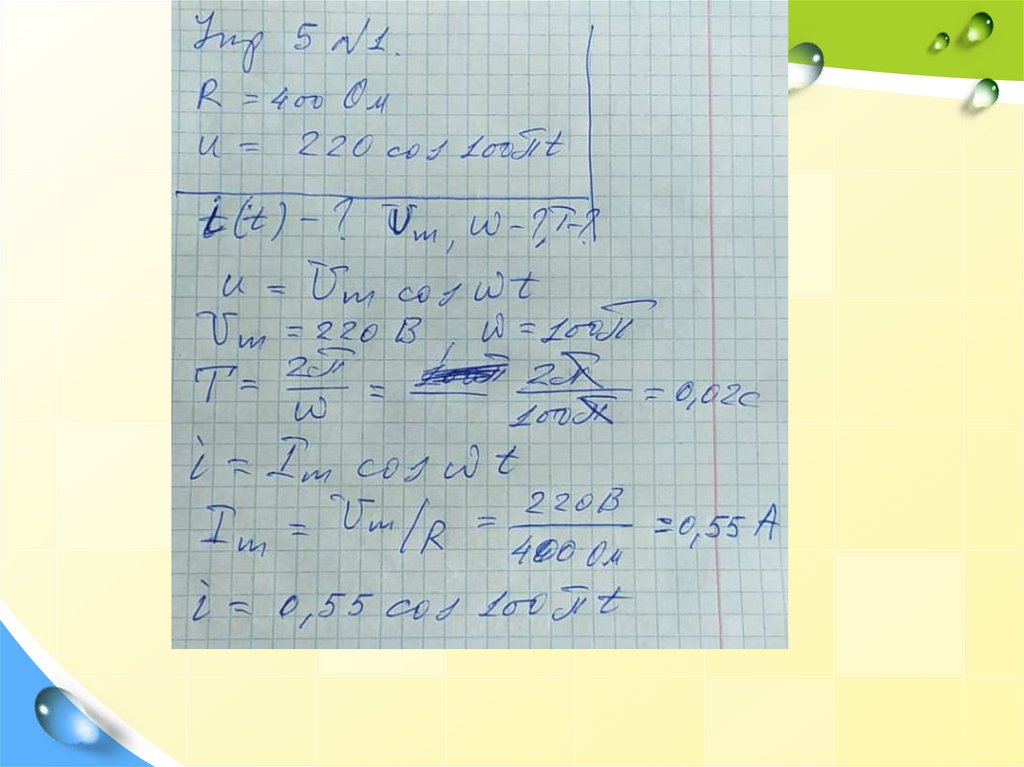 Упр 5 №1.
R = 400 Ом
u = 220 cos 100πt
i(t) - ? Um, ω - ?, T - ?
u = Um cos ωt
Um = 220 В, ω = 100π
T = 2π/ω = 2π/100π = 0,02с
i = Im cos ωt
Im = Um/R = 220В/400 Ом = 0,55 А
i = 0,55 cos 100πt